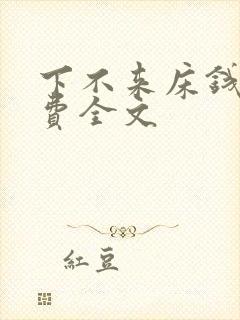 下不来床钱
費全文
紅豆